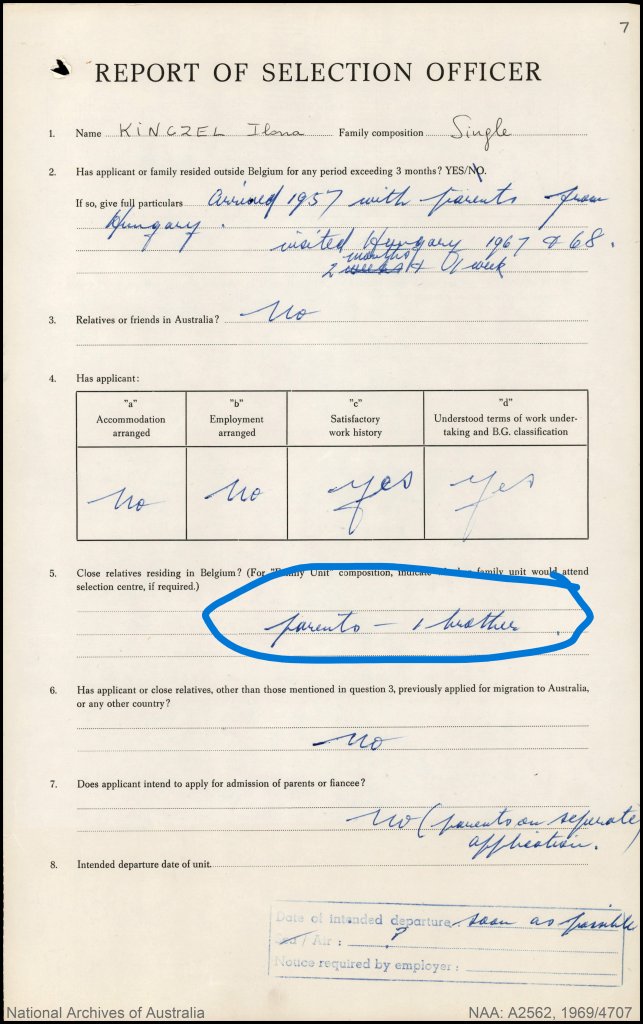 7
REPORT OF SELECTION OFFICER
1. Name KINCZEL Ilona Family composition Single
2. Has applicant or family resided outside Belgium for any period exceeding 3 months? YES/NO.
If so, give full particulars Arrived 1957 with parents from
Hungary.
visited Hungary 1967 & 68.
months
2 weeks + 1 week
3. Relatives or friends in Australia? No
4. Has applicant:
"a" "b" "c" "d"
Accommodation Employment Satisfactory Understood terms of work under-
arranged arranged work history taking and B.G. classification
No No Yes Yes
5. Close relatives residing in Belgium? (For "Family Unit" composition, indicate family unit would attend
selection centre, if required.)
parents - 1 brother.
6. Has applicant or close relatives, other than those mentioned in question 3, previously applied for migration to Australia,
or any other country?
No
7. Does applicant intend to apply for admission of parents or fiancee?
No (parents on separate
application.
8. Intended departure date of unit.
Date of intended departure soon as possible
Sea / Air : ?
Notice required by employer :
National Archives of Australia NAA: A2562, 1969/4707